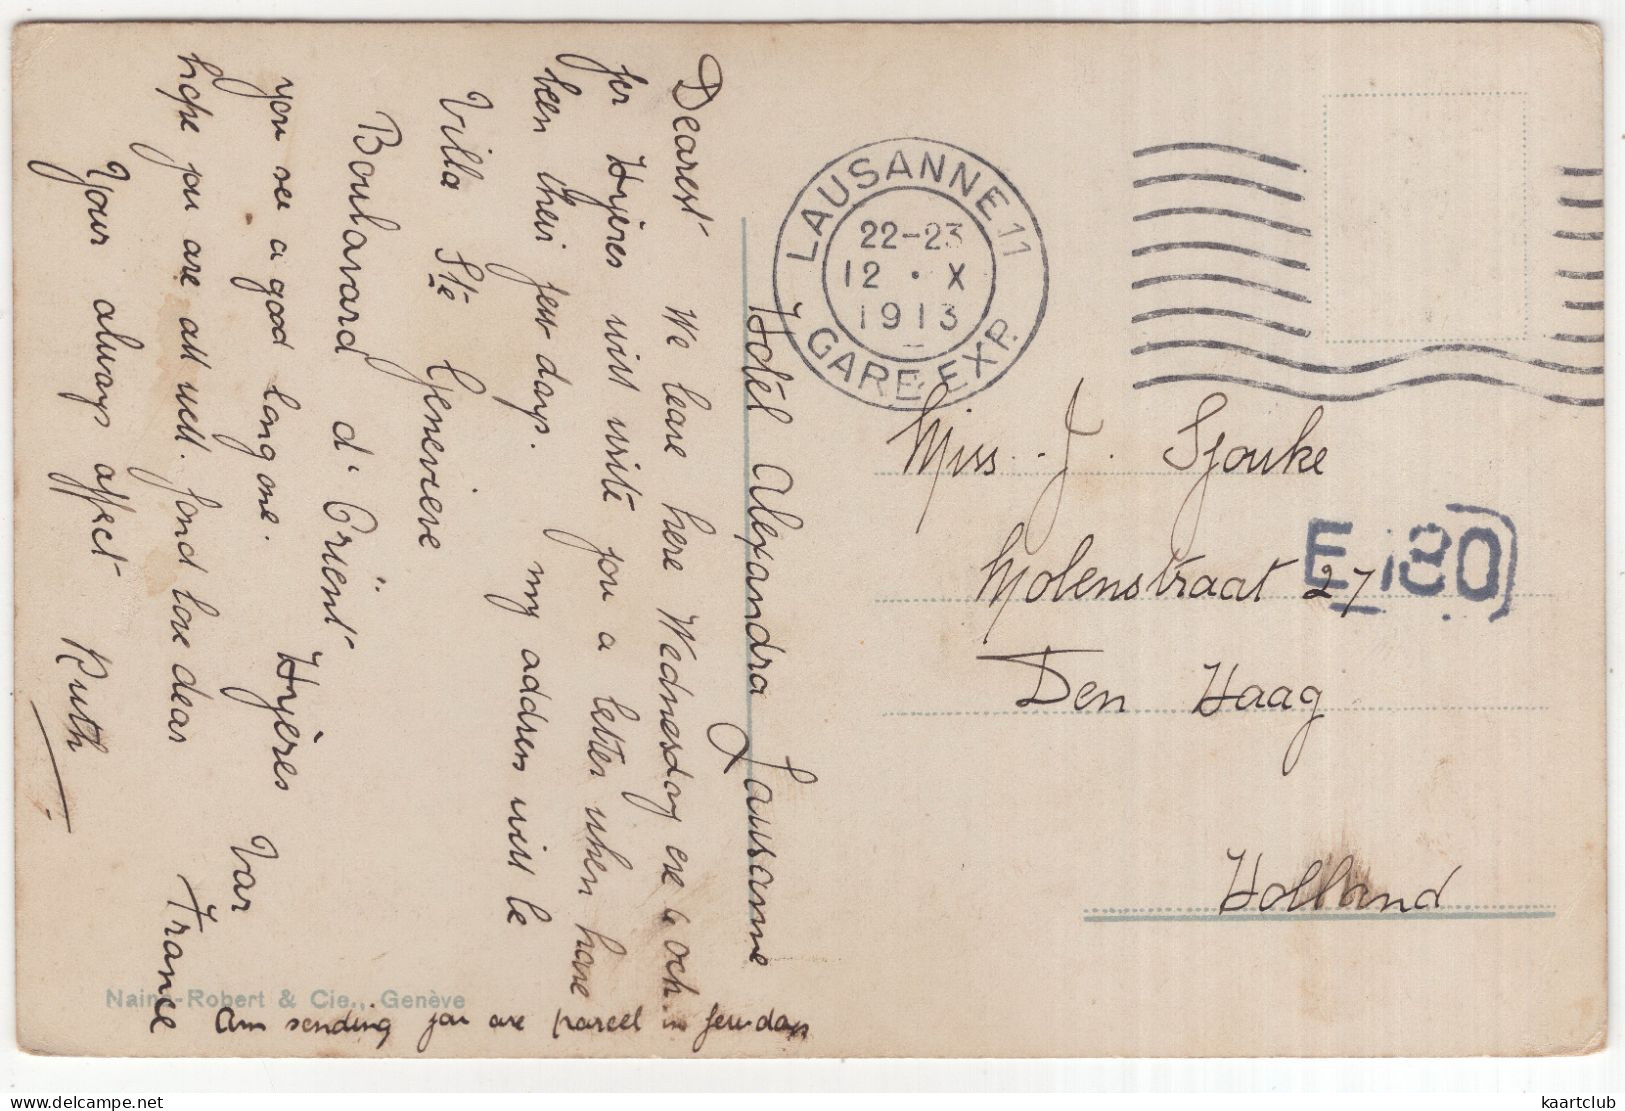 Hotel Alexandra Lausanne
Dearest We leave here Wednesday eve
for Hyères will write you a letter when have
been their few days. my adress will be
Villa Ste Genevieve
Boulavard d'Orient
Hyères Var
France
you see a good long one.
hope you are all well. fond love dear
Your always affect Ruth
Am sending you are parcel in few days
LAUSANNE 11
22-23
12 · X
1913
GARE EXP.
Miss. J. Sjouke
Molenstraat 27
E 180
Den Haag
Holland
Naine-Robert & Cie., Genève
delcampe.net
kaartclub